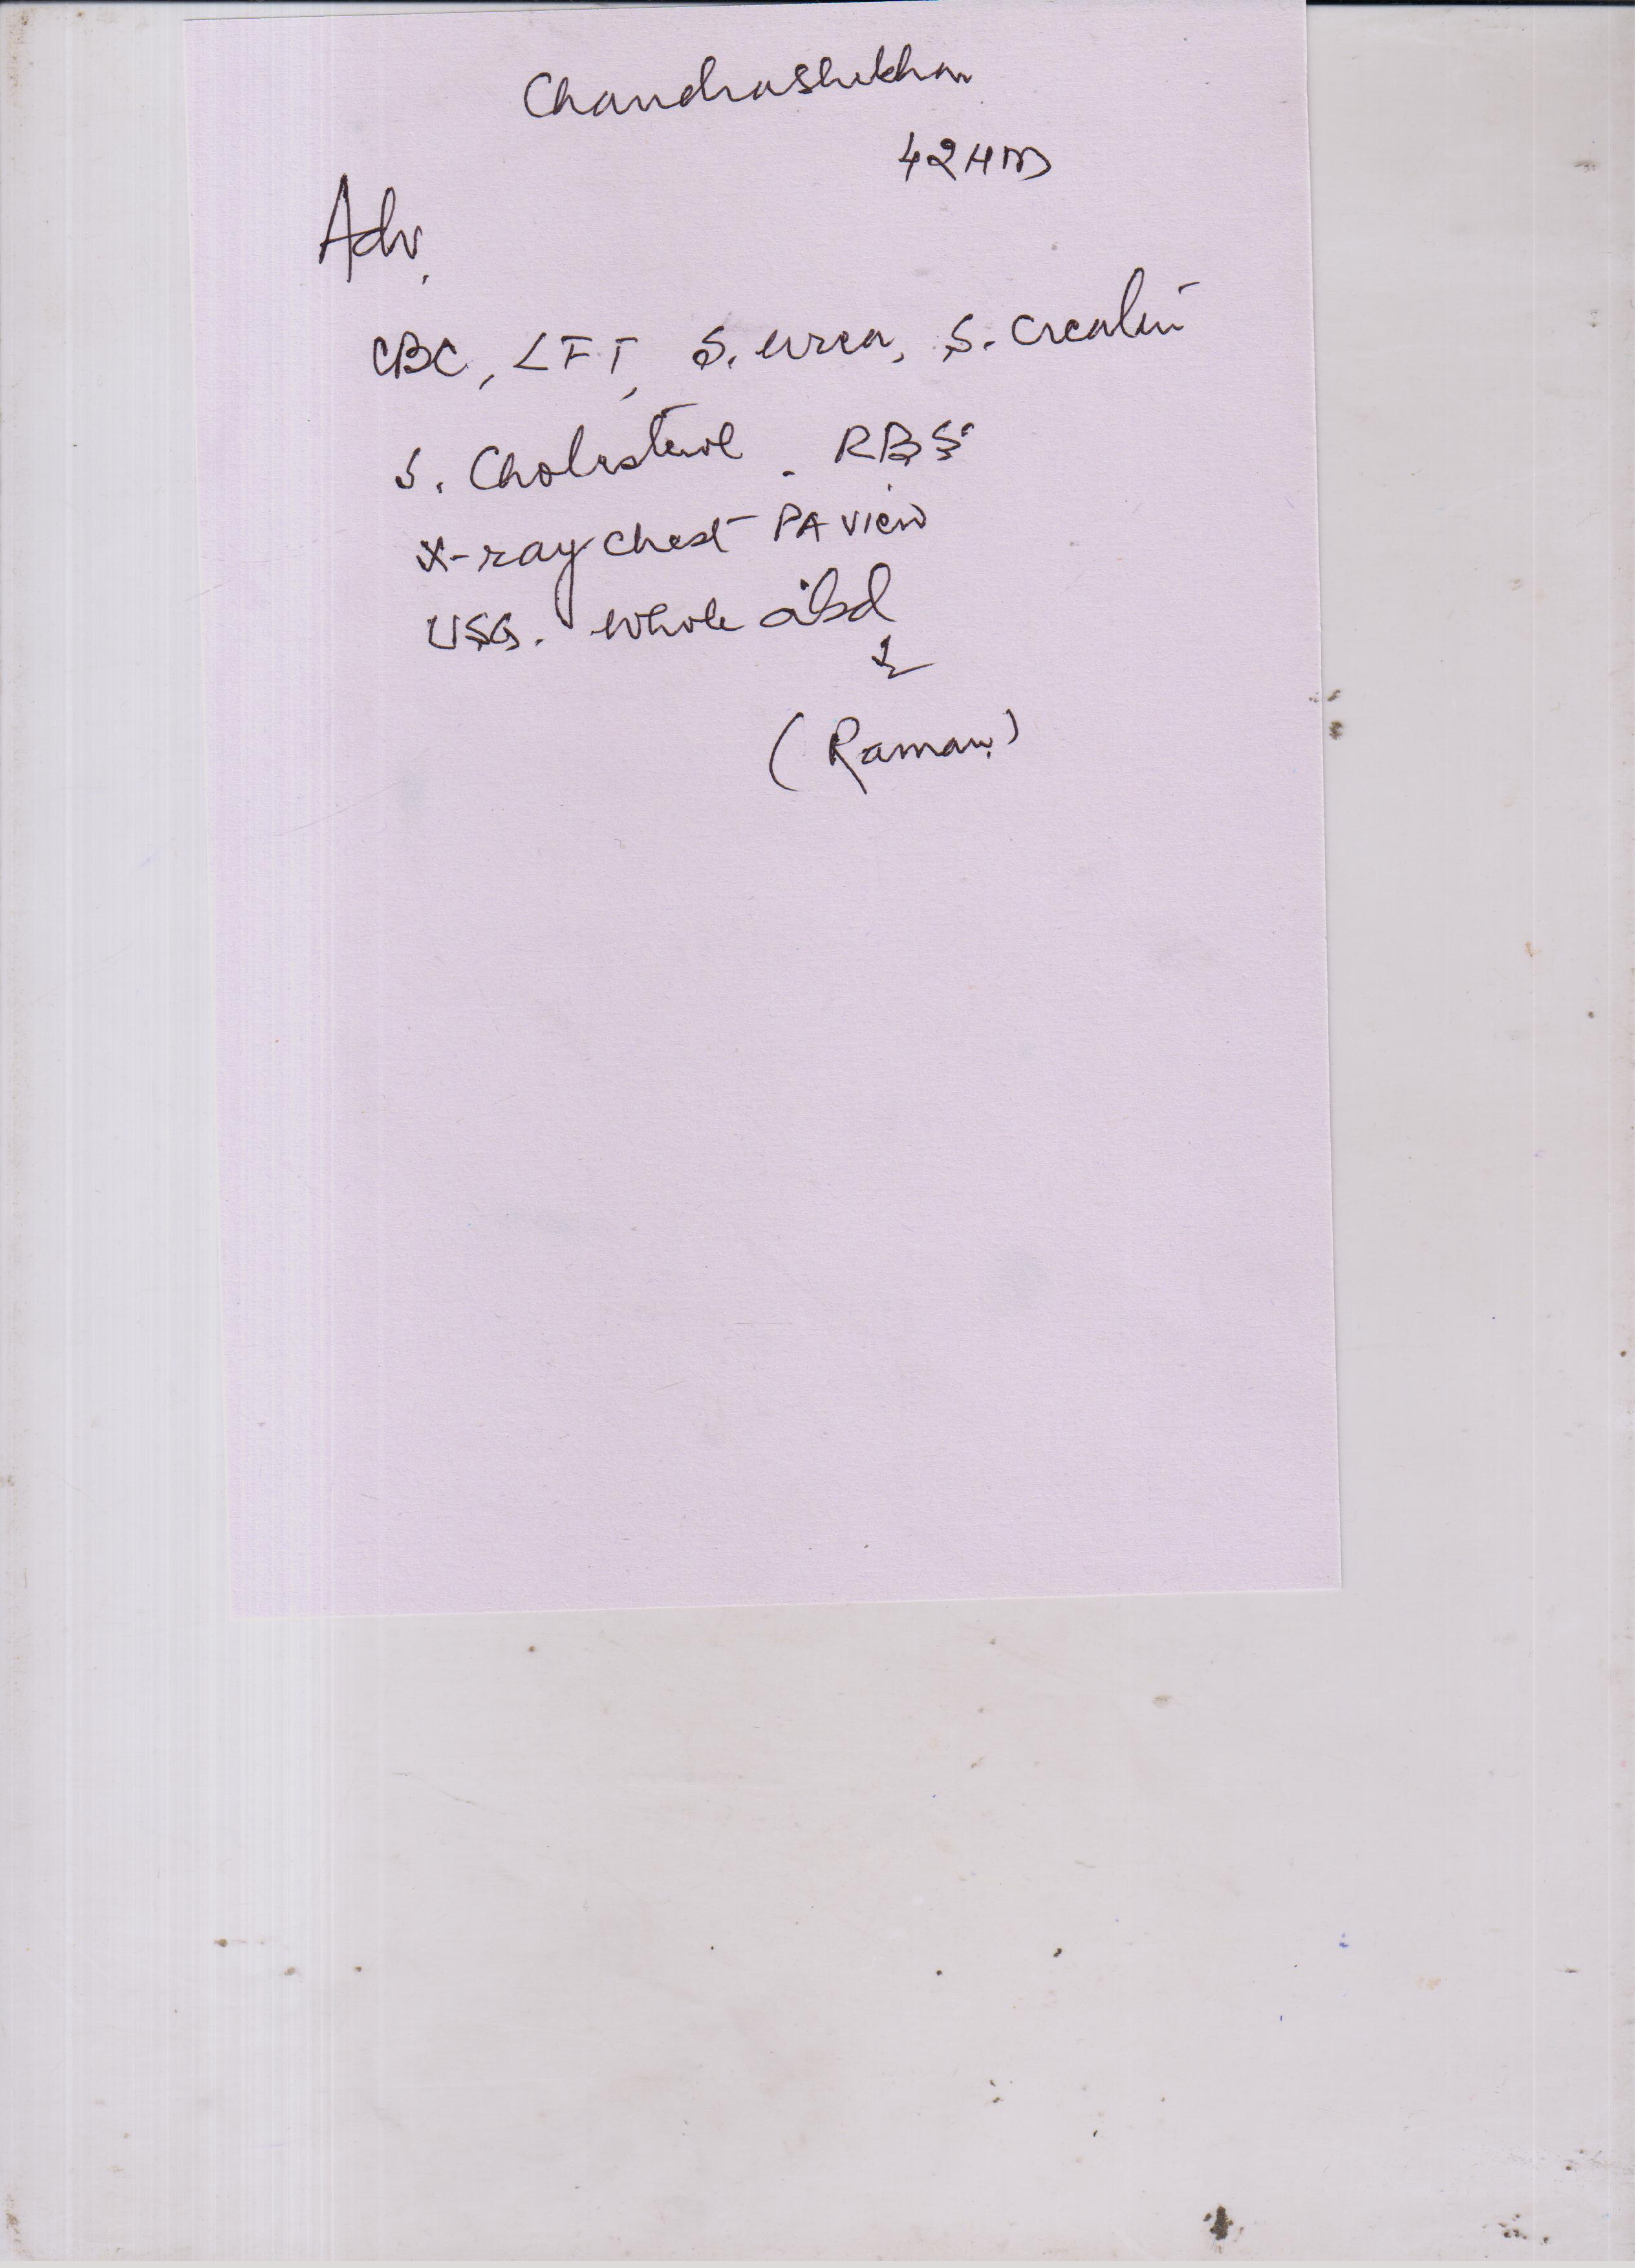 Chandrashekhar
42HM
Adv.
CBC, LFT, S. urea, S. Creatin
S. Cholesterol. RBS
X-ray chest PA view
USG. whole abd
(Raman)